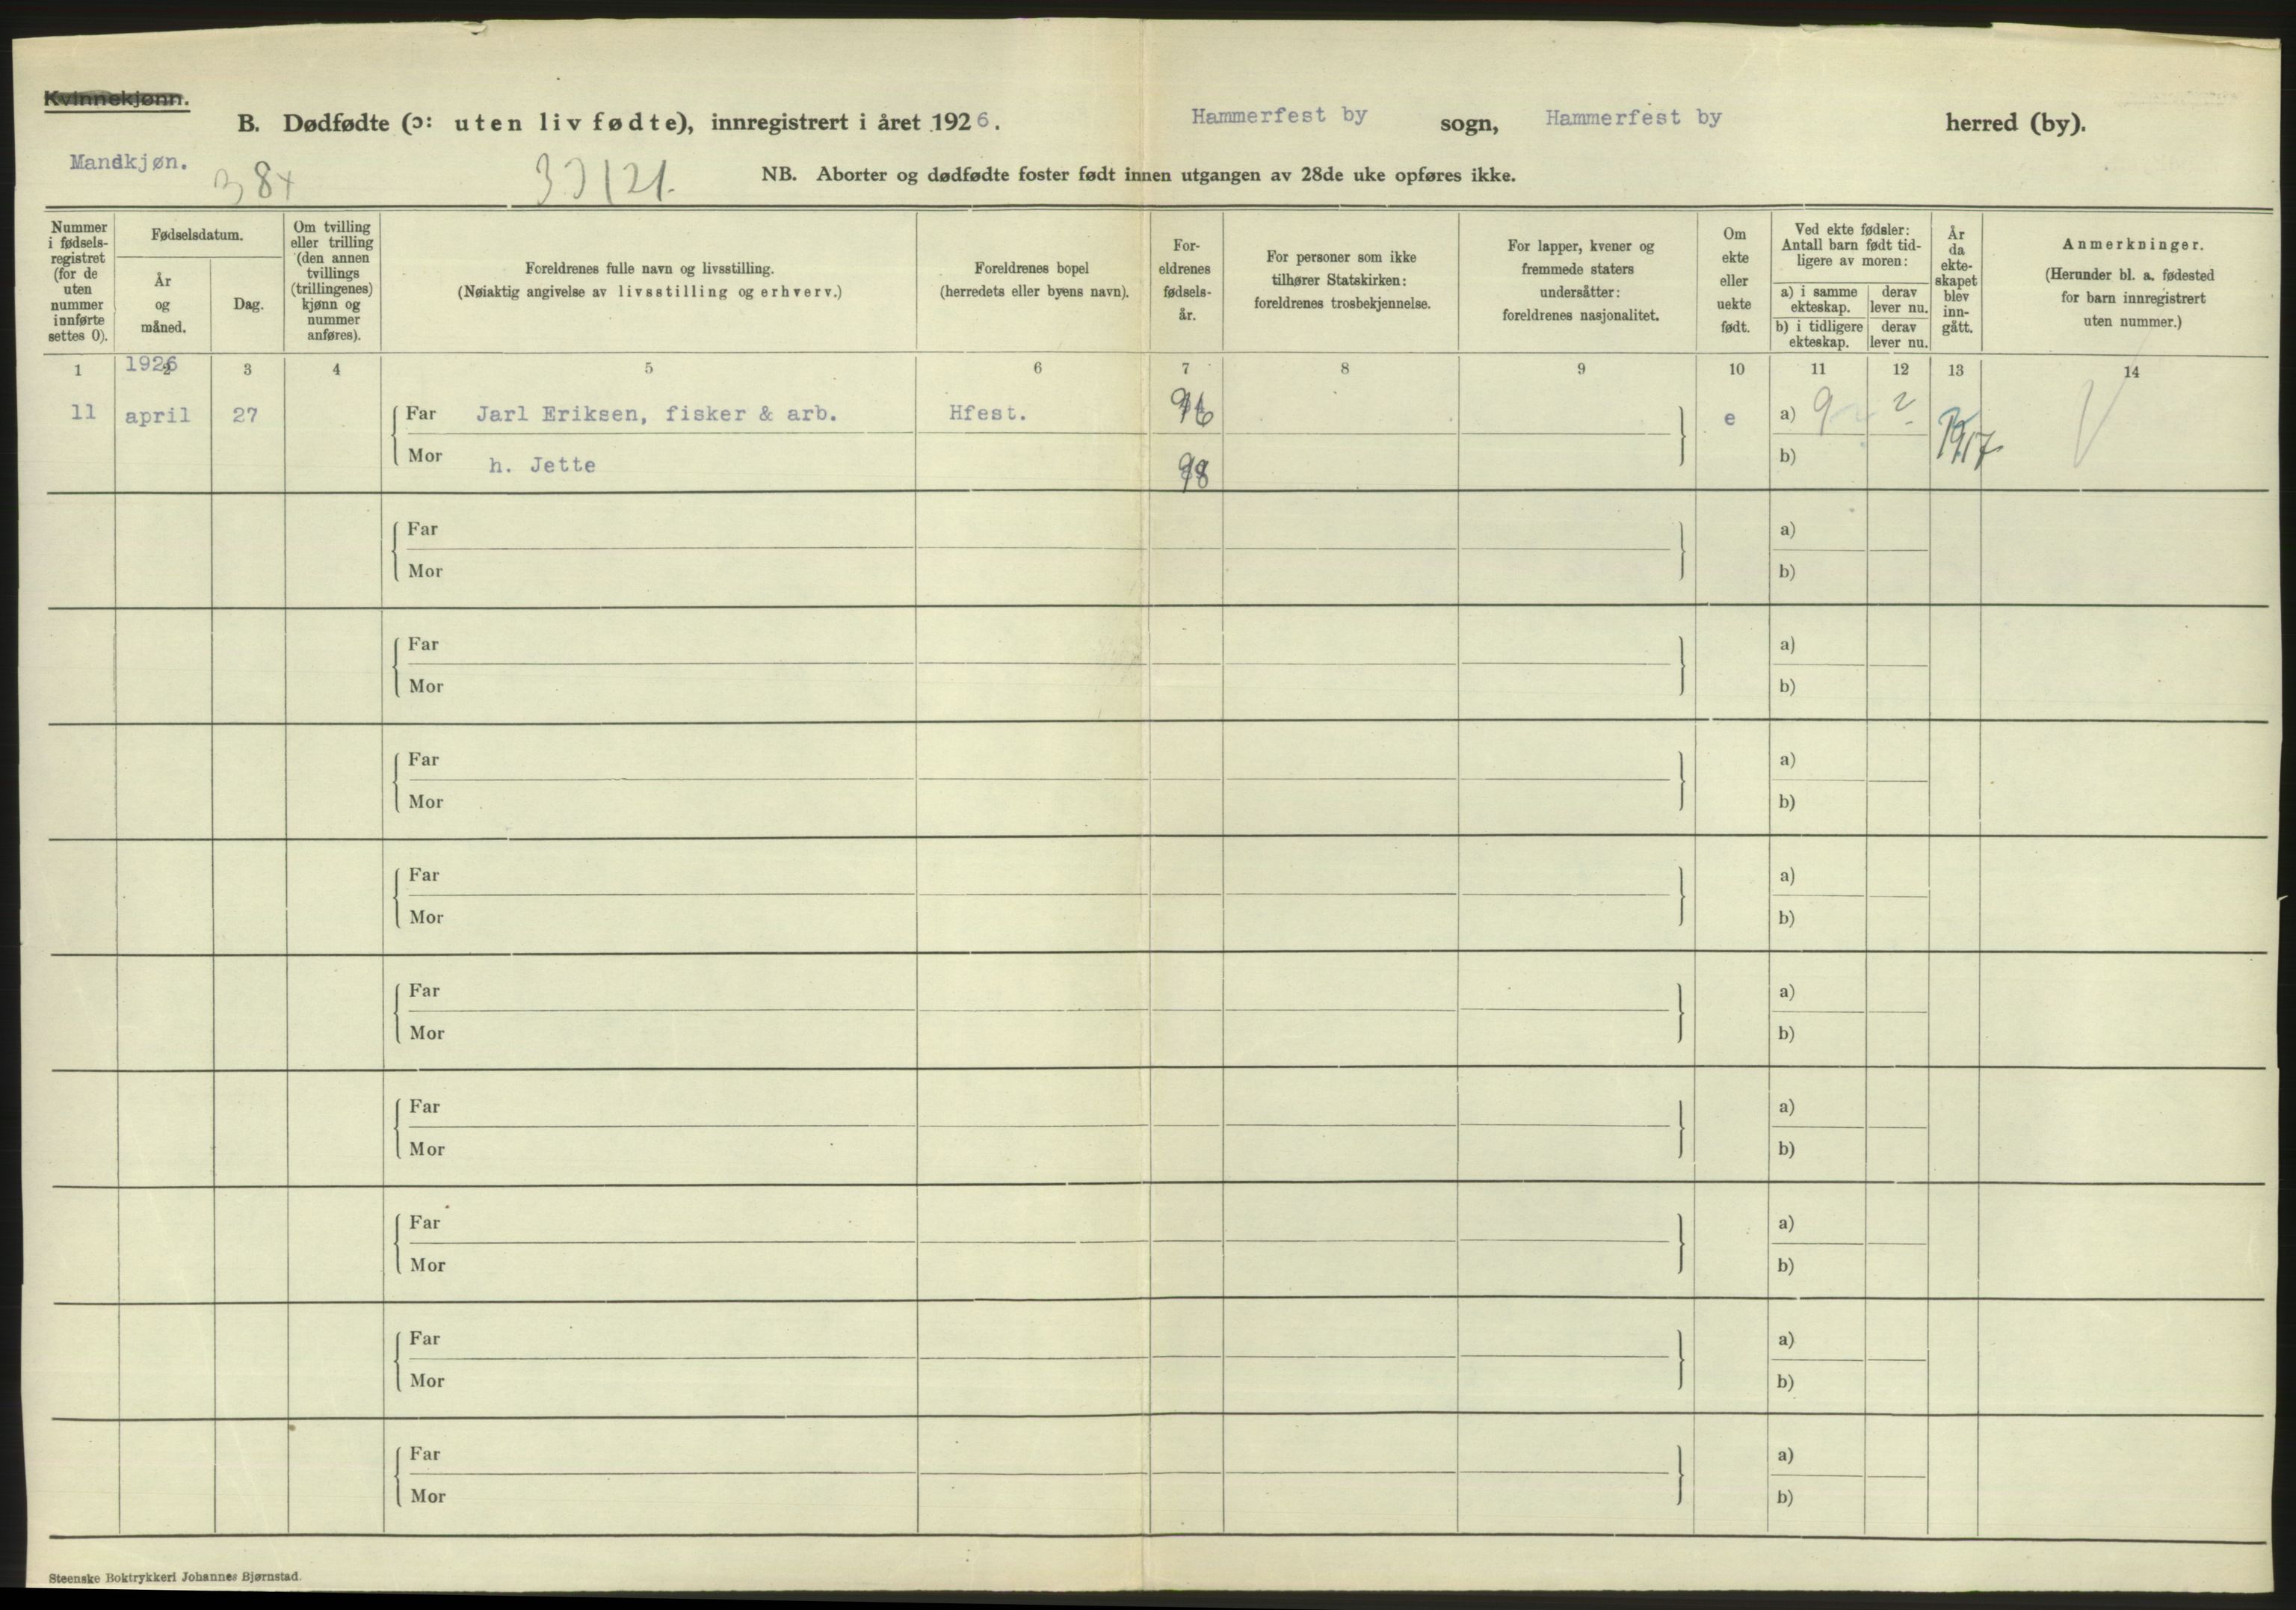 Kvinnekjønn.
B. Dødfødte (ɔ: uten liv fødte), innregistrert i året 1926. Hammerfest by sogn, Hammerfest by herred (by).
Mandkjøn.
384
NB. Aborter og dødfødte foster født innen utgangen av 28de uke opføres ikke.
Nummer i fødsels-registret (for de uten nummer innførte settes 0).
Fødselsdatum.
År og måned.
Dag.
Om tvilling eller trilling (den annen tvillings (trillingenes) kjønn og nummer anføres).
Foreldrenes fulle navn og livsstilling.
(Nøiaktig angivelse av livsstilling og erhverv.)
Foreldrenes bopel
(herredets eller byens navn).
For-eldrenes fødsels-år.
For personer som ikke tilhører Statskirken: foreldrenes trosbekjennelse.
For lapper, kvener og fremmede staters undersåtter: foreldrenes nasjonalitet.
Om ekte eller uekte født.
Ved ekte fødsler: Antall barn født tid-ligere av moren:
a) i samme ekteskap.
derav lever nu.
b) i tidligere ekteskap.
derav lever nu.
År da ekte-skapet blev inn-gått.
Anmerkninger.
(Herunder bl. a. fødested for barn innregistrert uten nummer.)
1 2 3 4 5 6 7 8 9 10 11 12 13 14
1926
11 april 27 Far Jarl Eriksen, fisker & arb. Hfest. 96 e a) 9 2 1917
Mor h. Jette 98 b)
Far a)
Mor b)
Far a)
Mor b)
Far a)
Mor b)
Far a)
Mor b)
Far a)
Mor b)
Far a)
Mor b)
Far a)
Mor b)
Far a)
Mor b)
Far a)
Mor b)
Steenske Boktrykkeri Johannes Bjørnstad.